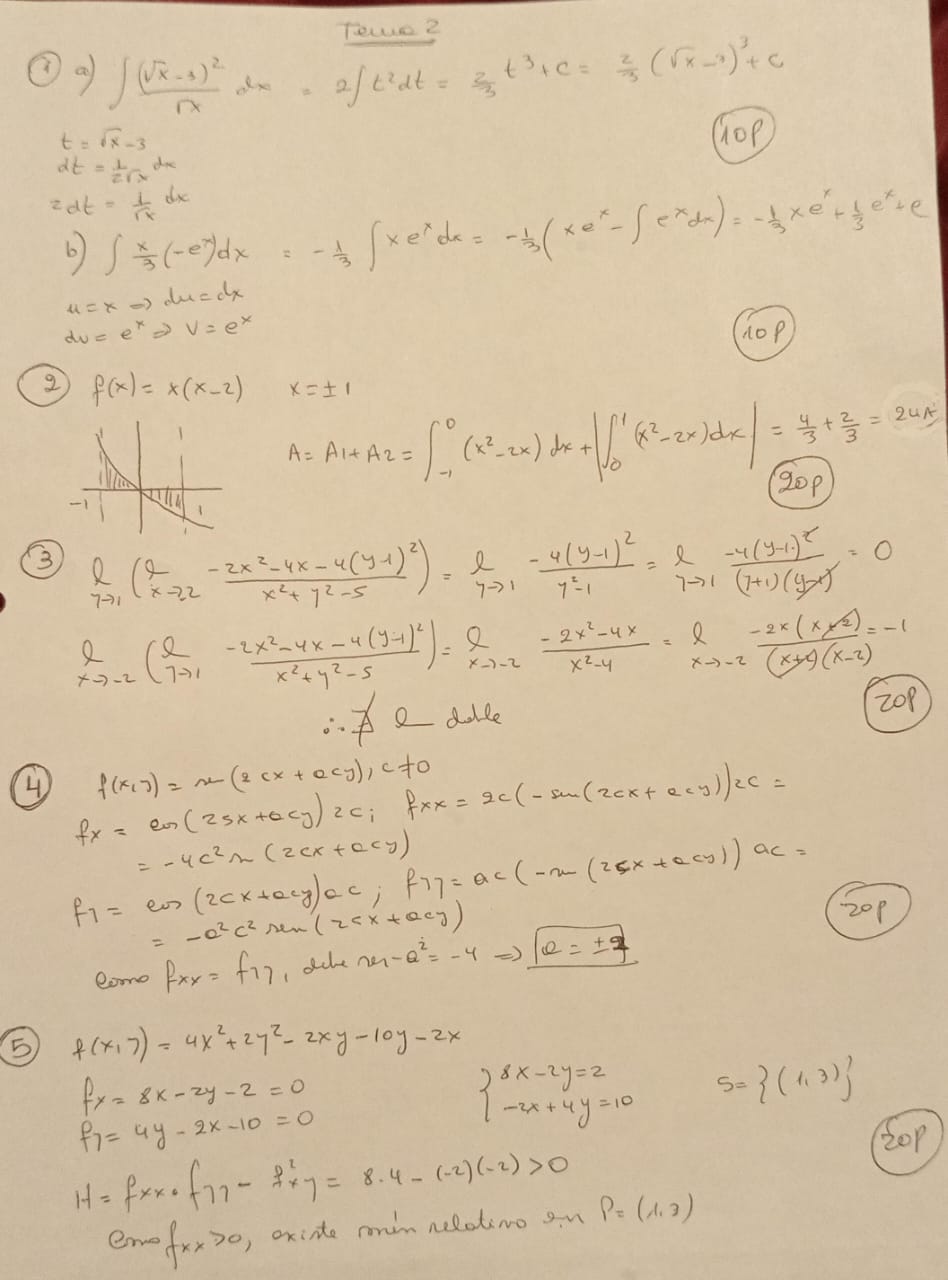 Tema 2
① a) ∫ (√x-3)²/√x dx = 2∫t²dt = 2/3 t³+c = 2/3 (√x-3)³+c
t = √x-3
dt = 1/(2√x) dx
2dt = 1/√x dx
10P
b) ∫ x/3 (-eˣ)dx = -1/3 ∫xeˣdx = -1/3(xeˣ - ∫eˣdx) = -1/3 xeˣ + 1/3 eˣ + c
u=x ⇒ du=dx
dv= eˣ ⇒ v=eˣ
10P
② f(x) = x(x-2) x=±1
A = A1+A2 = ∫₋₁⁰ (x²-2x) dx + |∫₀¹ (x²-2x)dx| = 4/3 + 2/3 = 2uA
-1 1
20P
③ l y→1 (l x→2 (-2x²-4x-4(y-1)²)/(x²+y²-5)) = l y→1 (-4(y-1)²)/(y²-1) = l y→1 (-4(y-1)²)/((y+1)(y-1)) = 0
l x→-2 (l y→1 (-2x²-4x-4(y-1)²)/(x²+y²-5)) = l x→-2 (-2x²-4x)/(x²-4) = l x→-2 (-2x(x+2))/((x+2)(x-2)) = -1
∴ ∄ l doble
20P
④ f(x,y) = sen(2cx+acy), c≠0
fx = cos(2cx+acy)2c; fxx = 2c(-sen(2cx+acy))2c =
= -4c² sen(2cx+acy)
fy = cos(2cx+acy)ac; fyy = ac(-sen(2cx+acy))ac =
= -a²c² sen(2cx+acy)
20P
Como fxx = fyy, debe ser -a² = -4 ⇒ a = ±2
⑤ f(x,y) = 4x²+2y²-2xy-10y-2x
fx = 8x-2y-2=0 { 8x-2y=2 S={(1,3)}
fy = 4y-2x-10=0 -2x+4y=10
20P
H = fxx·fyy - f²xy = 8·4-(-2)(-2)>0
Como fxx>0, existe mín relativo en P=(1,3)